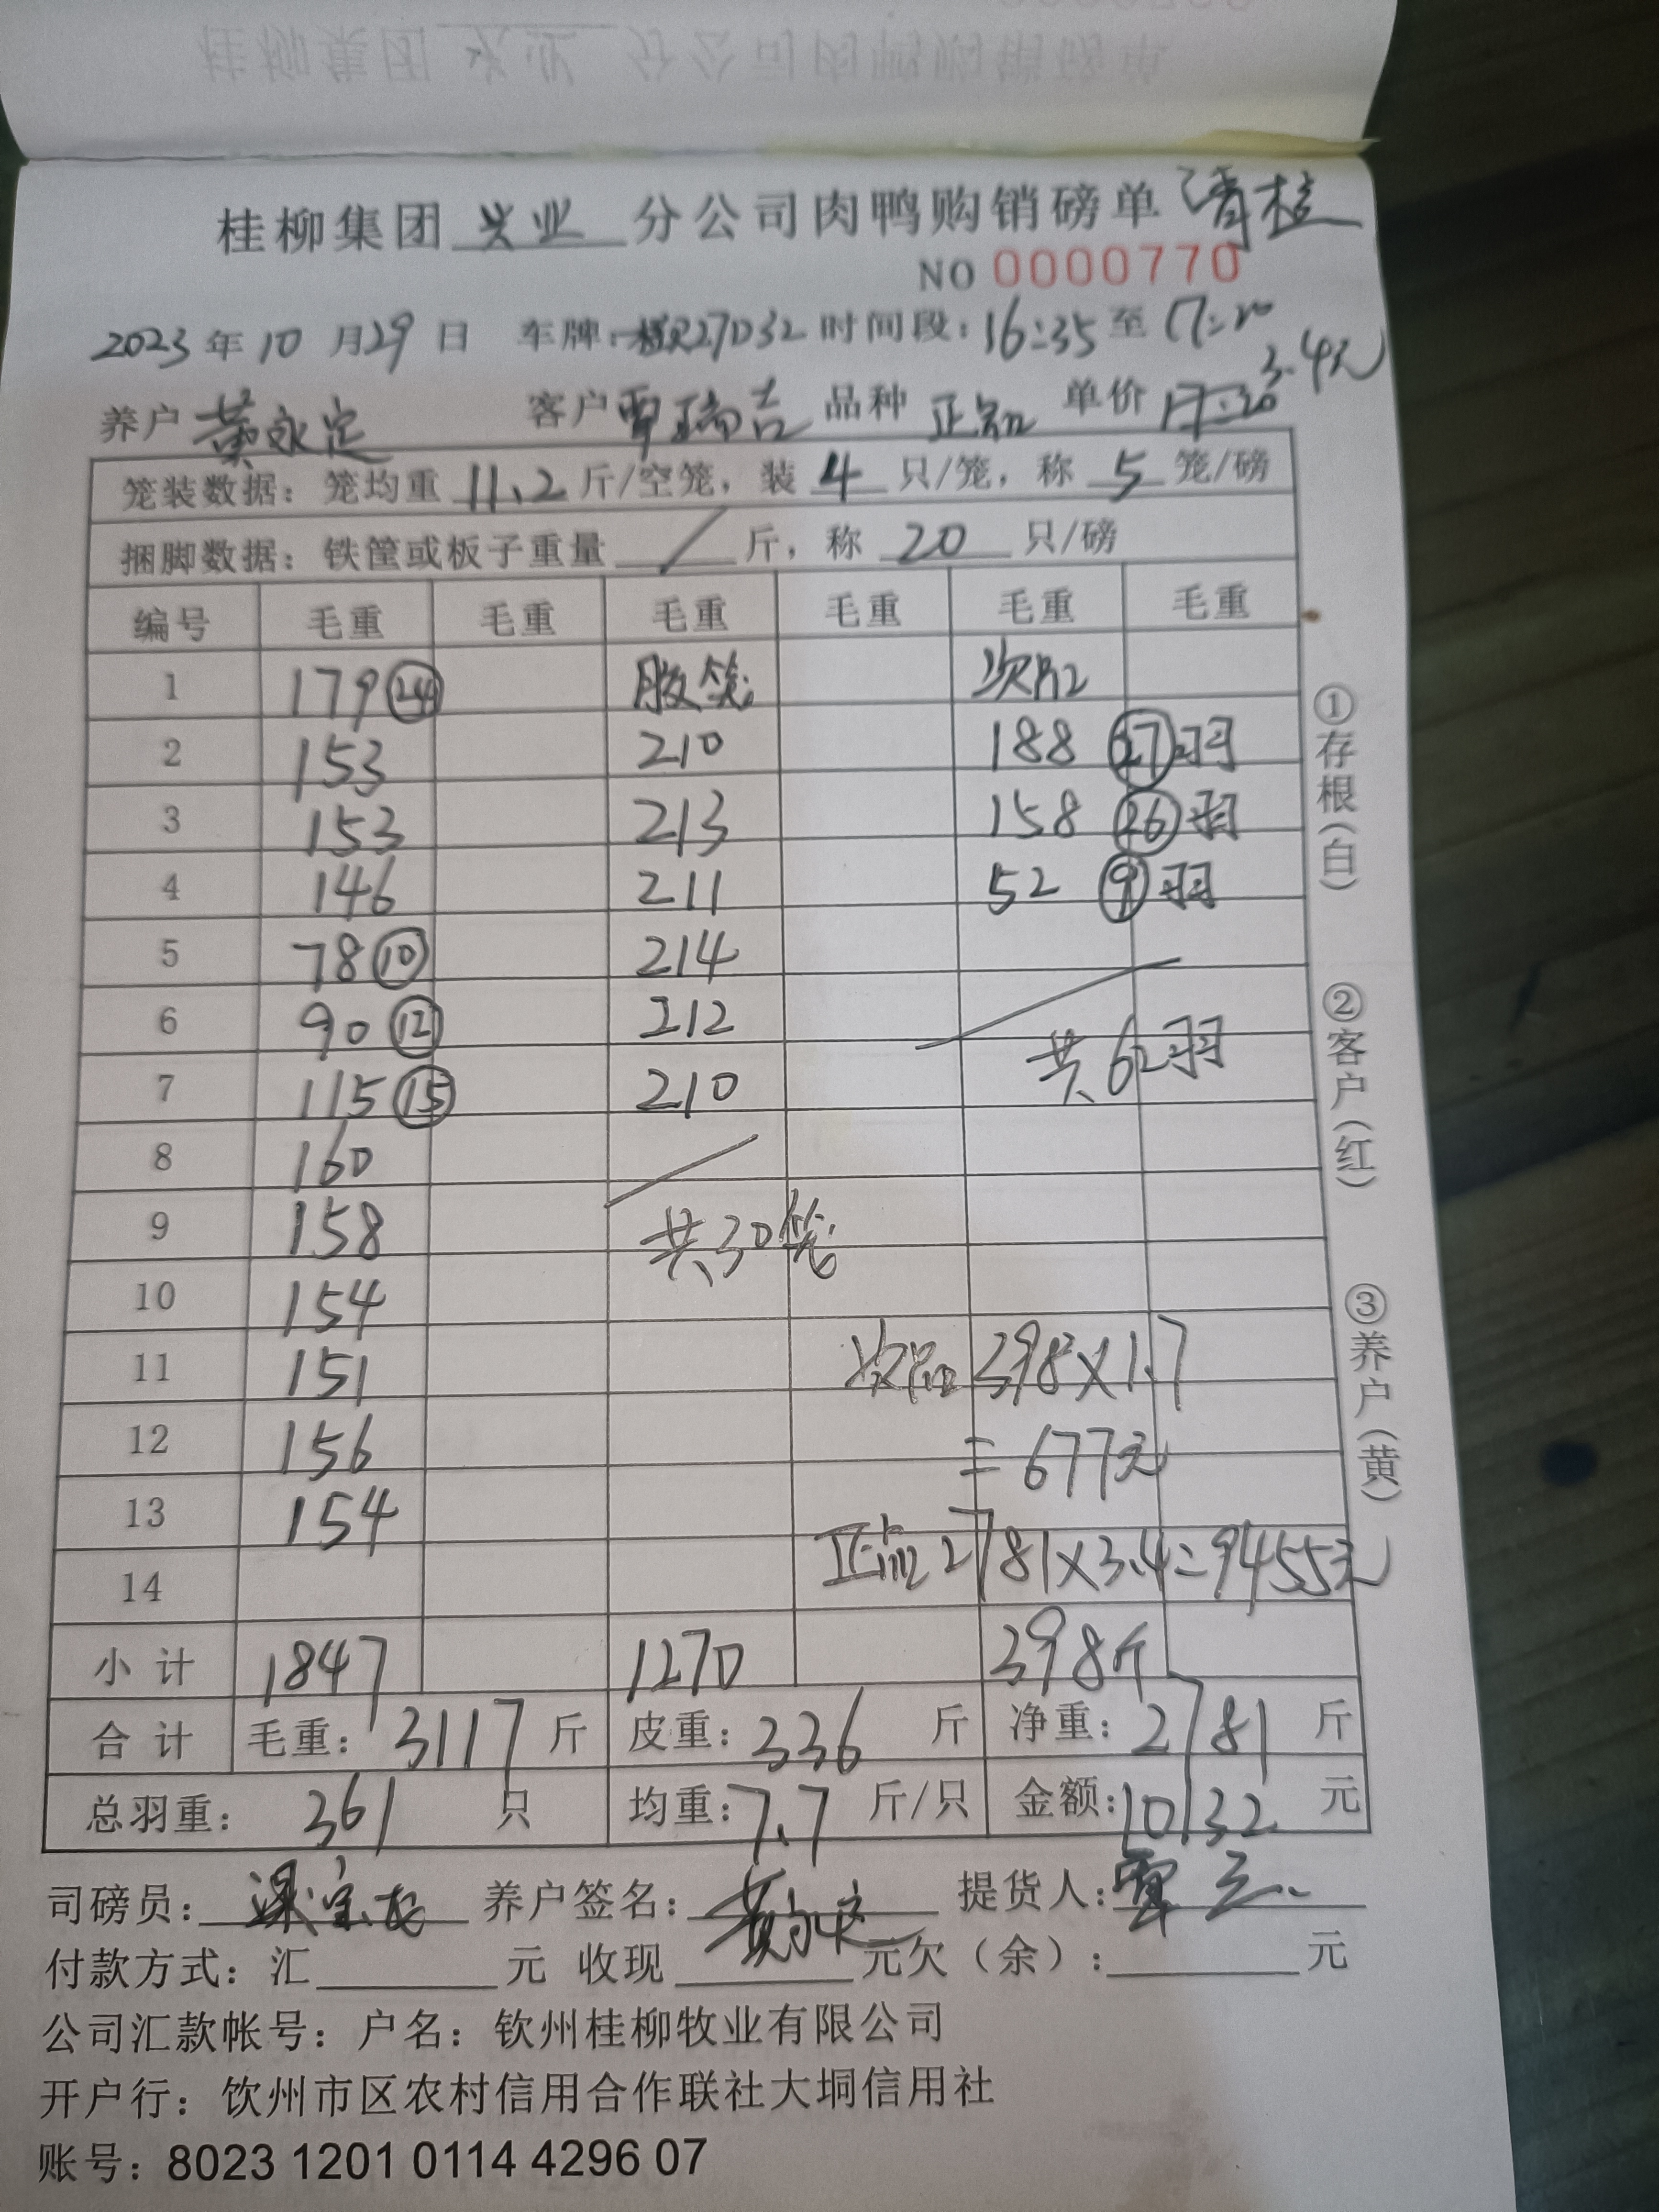 桂柳集团 兴业 分公司肉鸭购销磅单 清桂
NO 0000770
2023 年 10 月 29 日 车牌: 27D32 时间段: 16:35 至 17:20
养户 黄永定 客户 覃瑞吉 品种 正品 单价 3.4元
笼装数据: 笼均重 11.2 斤/空笼, 装 4 只/笼, 称 5 笼/磅
捆脚数据: 铁筐或板子重量 / 斤, 称 20 只/磅
编号 毛重 毛重 毛重 毛重 毛重 毛重
1 179 (24) 胶笼 次品
2 153 210 188 (27)羽
3 153 213 158 (26)羽
4 146 211 52 (9)羽
5 78 (10) 214
6 90 (12) 212 共62羽
7 115 (15) 210
8 160
9 158 共30笼
10 154
11 151 次品 398×1.7
12 156 =677元
13 154
14 正品 2781×3.4=9455元
小计 1847 1270 398斤
合计 毛重: 3117 斤 皮重: 336 斤 净重: 2781 斤
总羽重: 361 只 均重: 7.7 斤/只 金额: 10132 元
司磅员: 养户签名: 黄永定 提货人: 覃
付款方式: 汇 元 收现 元 欠(余): 元
公司汇款帐号: 户名: 钦州桂柳牧业有限公司
开户行: 钦州市区农村信用合作联社大垌信用社
账号: 8023 1201 0114 4296 07
①存根(白)
②客户(红)
③养户(黄)